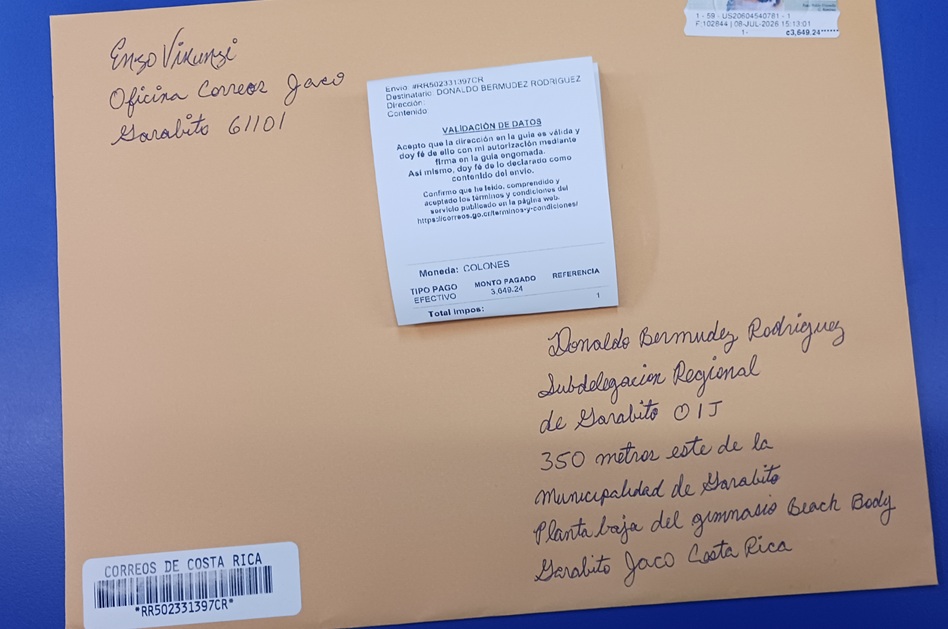 Enzo Vizunzi
Oficina Correos Jaco
Garabito 61101
1 - 59 - US20604540781 - 1
F:102844 | 08-JUL-2026 15:13:01
1- ¢3,649.24******
Envio: #RR502331397CR
Destinatario: DONALDO BERMUDEZ RODRIGUEZ
Dirección:
Contenido
VALIDACIÓN DE DATOS
Acepto que la dirección en la guía es válida y
doy fé de ello con mi autorización mediante
firma en la guía engomada.
Así mismo, doy fé de lo declarado como
contenido del envío.
Confirmo que he leído, comprendido y
aceptado los términos y condiciones del
servicio publicado en la página web.
https://correos.go.cr/terminos-y-condiciones/
Moneda: COLONES
TIPO PAGO MONTO PAGADO REFERENCIA
EFECTIVO 3,649.24
Total impos: 1
Donaldo Bermudez Rodriguez
Subdelegacion Regional
de Garabito OIJ
350 metros este de la
municipalidad de Garabito
Planta baja del gimnasio Beach Body
Garabito Jaco Costa Rica
CORREOS DE COSTA RICA
*RR502331397CR*